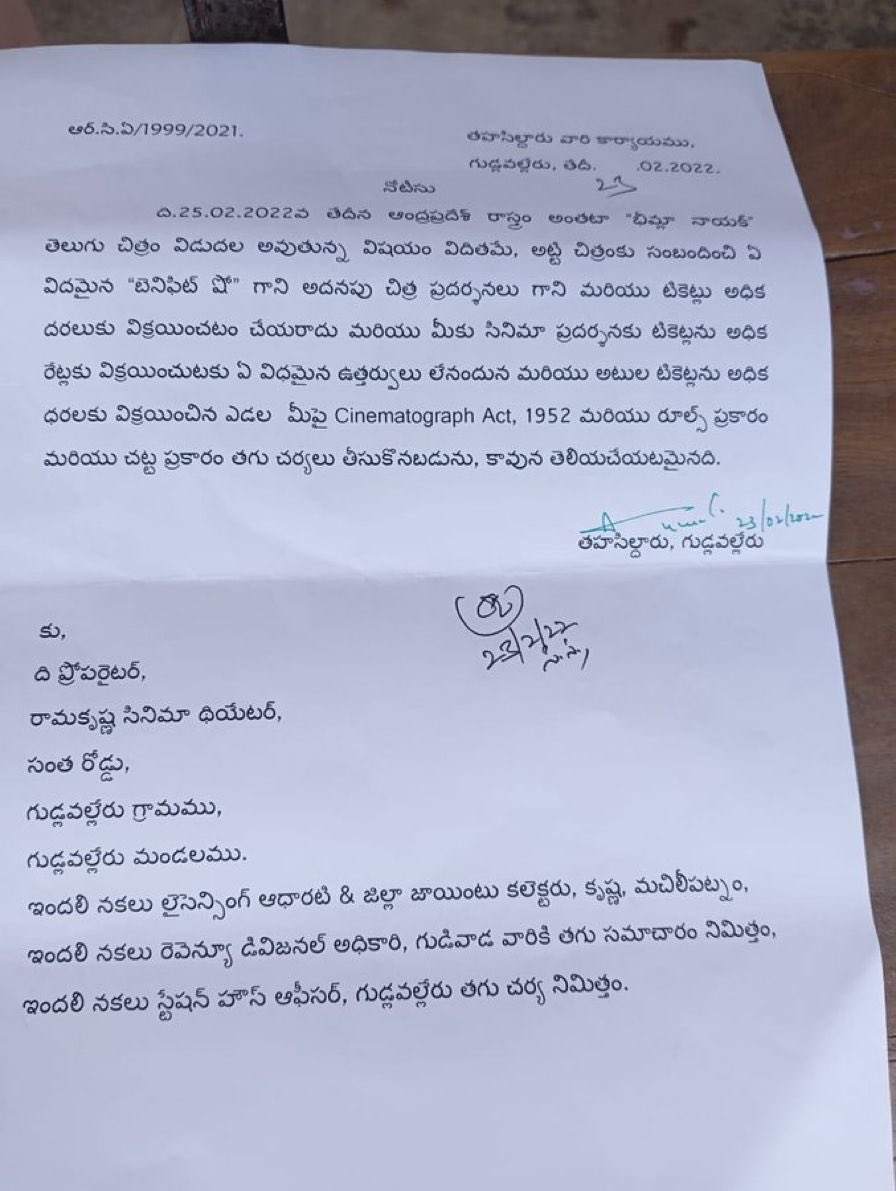 ఆర్.సి.ఏ/1999/2021.
తహసిల్దారు వారి కార్యాయము,
గుడ్లవల్లేరు, తెది. 23 .02.2022.
నోటీసు
ది.25.02.2022వ తేదీన ఆంద్రప్రదేశ్ రాస్త్రం అంతటా "భీమ్లా నాయక్"
తెలుగు చిత్రం విడుదల అవుతున్న విషయం విదితమే, అట్టి చిత్రంకు సంబందించి ఏ
విదమైన "బెనిఫిట్ షో" గాని అదనపు చిత్ర ప్రదర్శనలు గాని మరియు టికెట్లు అధిక
దరలుకు విక్రయించటం చేయరాదు మరియు మీకు సినిమా ప్రదర్శనకు టికెట్లను అధిక
రేట్లకు విక్రయించుటకు ఏ విధమైన ఉత్తర్వులు లేనందున మరియు అటుల టికెట్లను అధిక
ధరలకు విక్రయించిన ఎడల మీపై Cinematograph Act, 1952 మరియు రూల్స్ ప్రకారం
మరియు చట్ట ప్రకారం తగు చర్యలు తీసుకొనబడును, కావున తెలియచేయటమైనది.
23/02/2022
తహసిల్దారు, గుడ్లవల్లేరు
23/2/22
కు,
ది ప్రోపరైటర్,
రామకృష్ణ సినిమా థియేటర్,
సంత రోడ్డు,
గుడ్లవల్లేరు గ్రామము,
గుడ్లవల్లేరు మండలము.
ఇందలి నకలు లైసెన్సింగ్ ఆధారటి & జిల్లా జాయింటు కలెక్టరు, కృష్ణ, మచిలీపట్నం,
ఇందలి నకలు రెవెన్యూ డివిజనల్ అధికారి, గుడివాడ వారికి తగు సమాచారం నిమిత్తం,
ఇందలి నకలు స్టేషన్ హౌస్ ఆఫీసర్, గుడ్లవల్లేరు తగు చర్య నిమిత్తం.